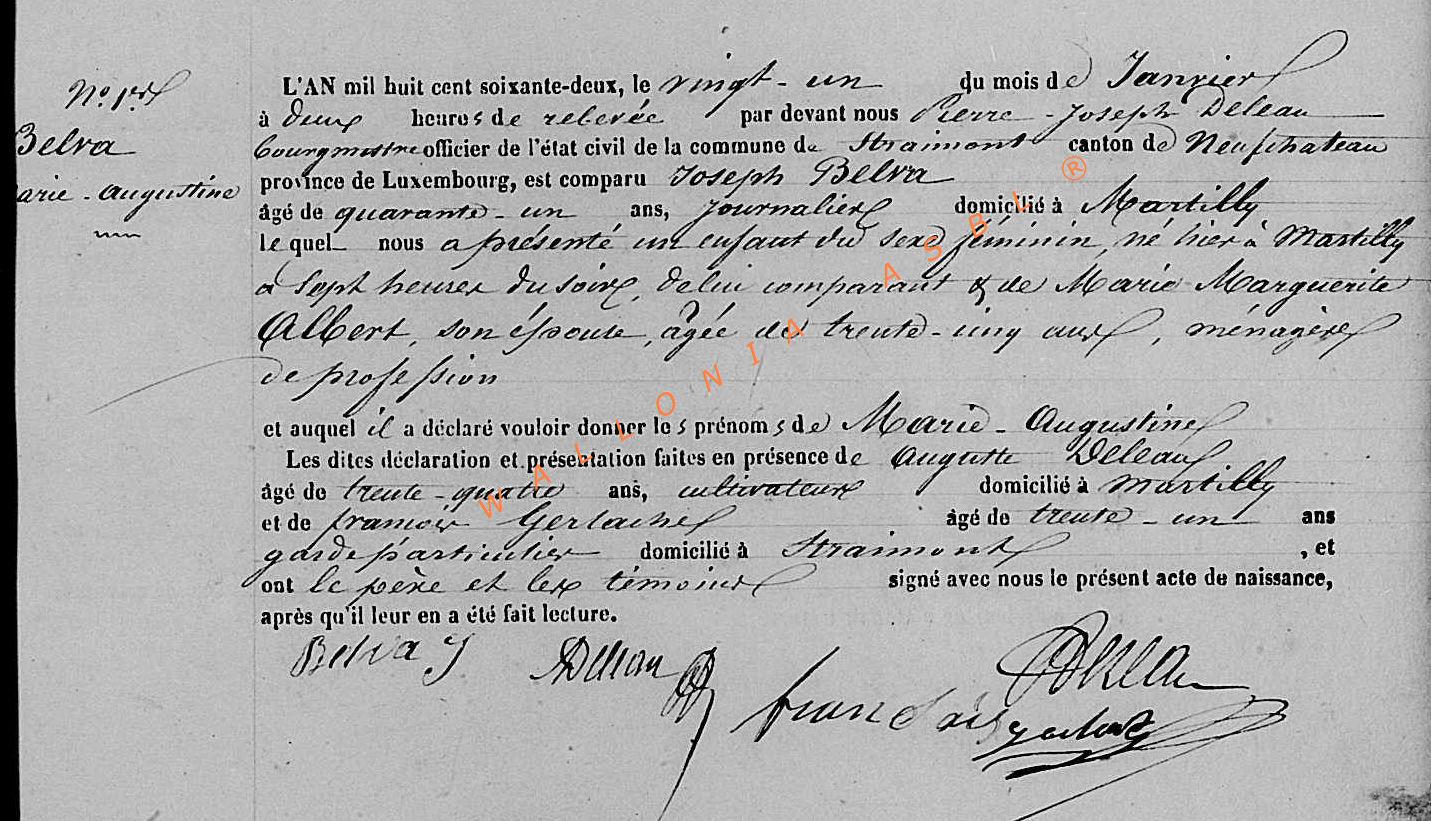 N° 1er
Belva
arie - Augustine
L'AN mil huit cent soixante-deux, le vingt - un du mois de Janvier
à deux heures de relevée par devant nous Pierre - Joseph Deleau
bourgmestre officier de l'état civil de la commune de Straimont canton de Neufchateau
province de Luxembourg, est comparu Joseph Belva
âgé de quarante - un ans, Journalier domicilié à Martilly
lequel nous a présenté un enfant du sexe féminin, né hier à Martilly
à sept heures du soir, de lui comparant & de Marie Marguerite
Albert, son épouse, âgée de trente - cinq ans, ménagère
de profession
et auquel il a déclaré vouloir donner les prénoms de Marie - Augustine
Les dites déclaration et présentation faites en présence de Auguste Deleau
âgé de trente - quatre ans, cultivateur domicilié à Martilly
et de françois Gerlache âgé de trente - un ans
garde particulier domicilié à Straimont , et
ont le père et les témoins signé avec nous le présent acte de naissance,
après qu'il leur en a été fait lecture.
Belva J ADeleau Deleau
francois gerlache
WALLONIA ASBL ®